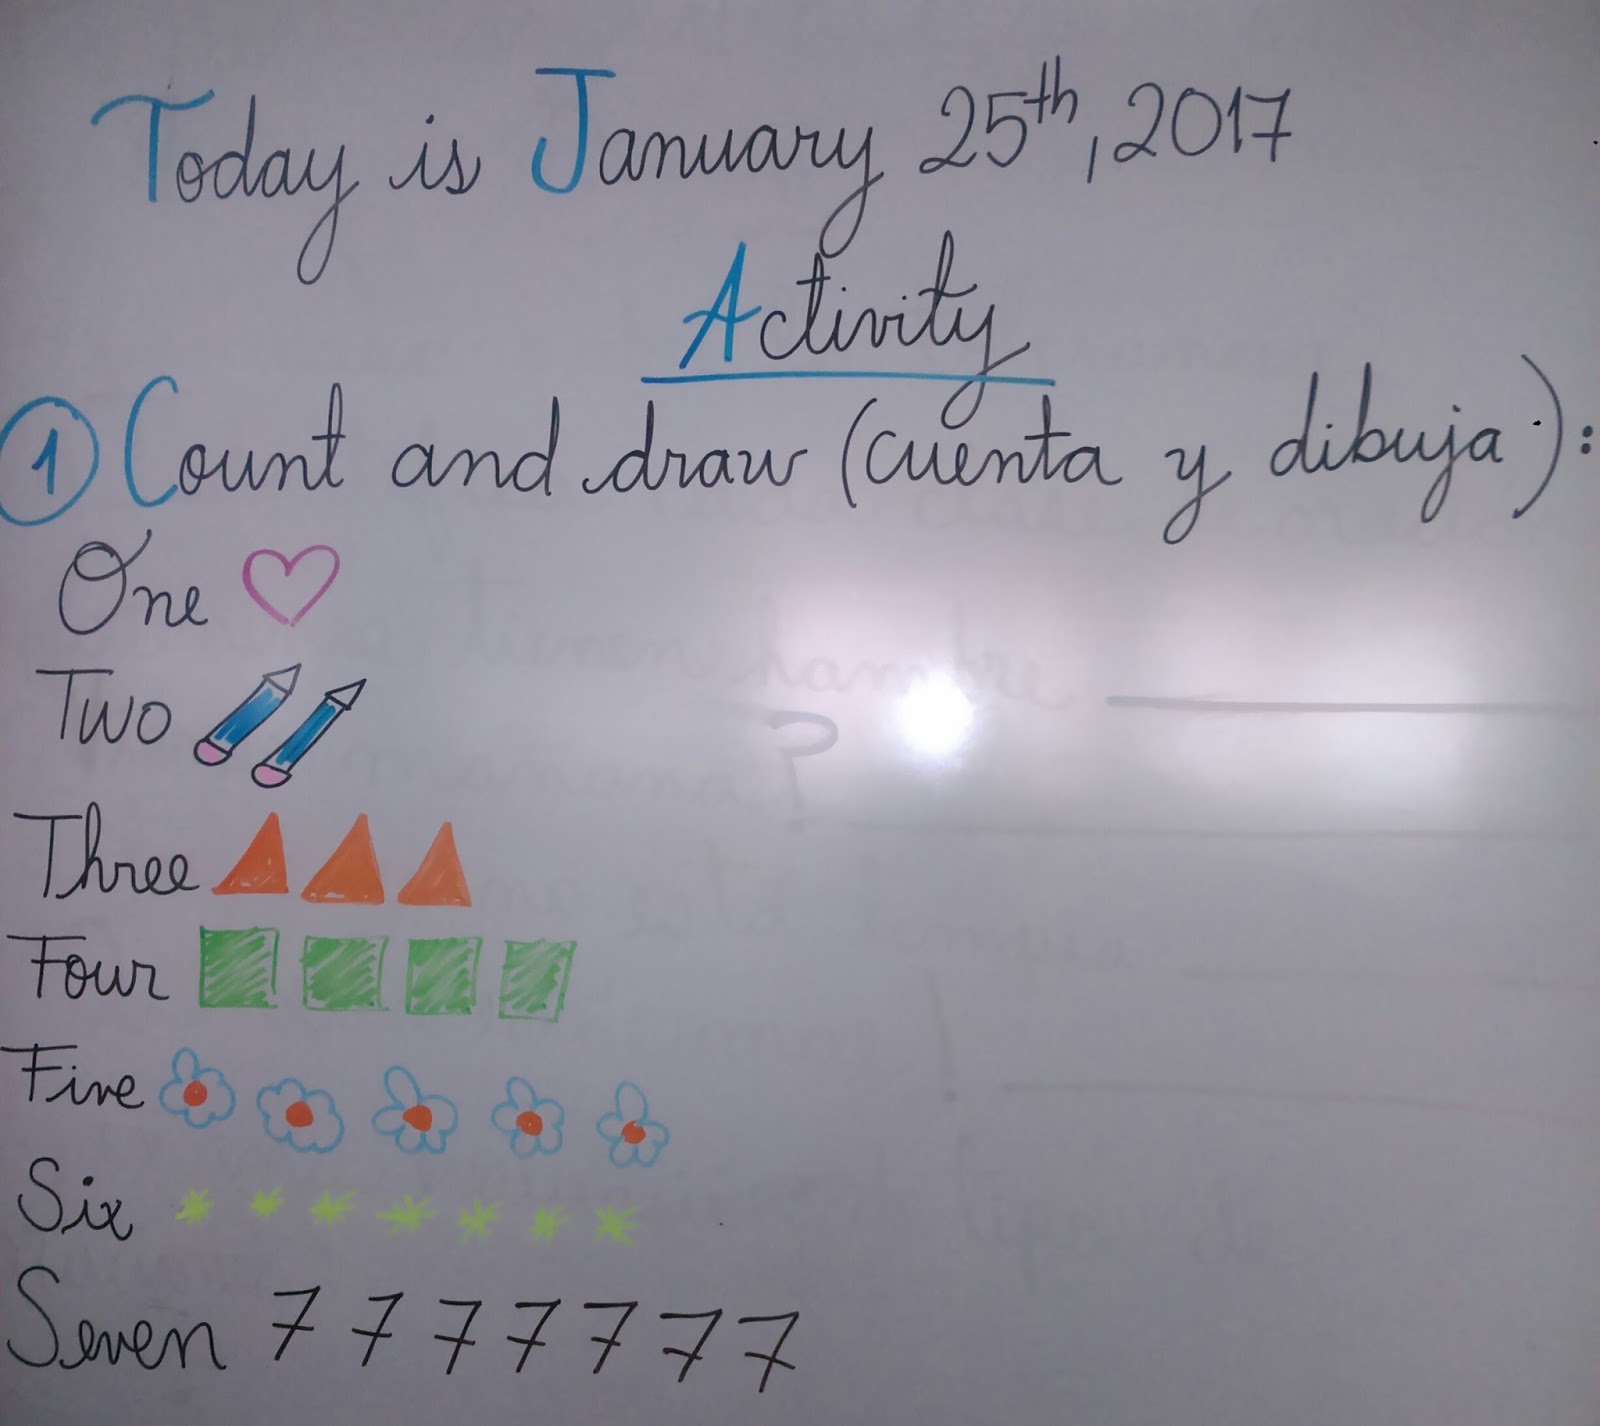 Today is January 25th, 2017
Activity
1 Count and draw (cuenta y dibuja):
One
Two
Three
Four
Five
Six
Seven 7 7 7 7 7 7 7